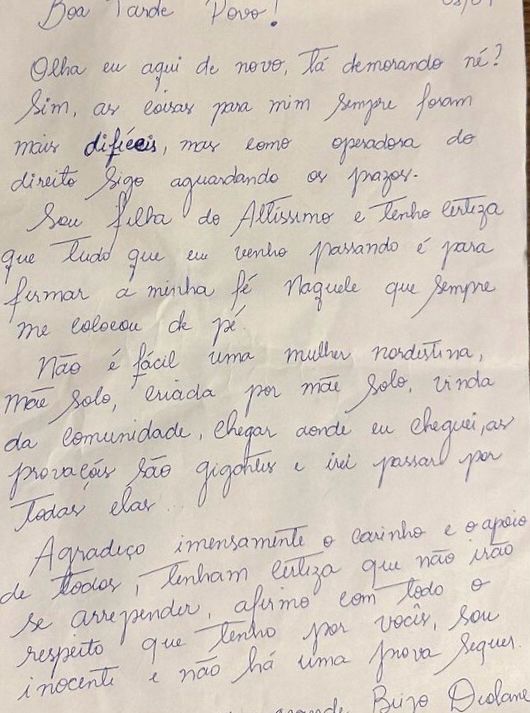 Boa Tarde Povo!
Olha eu aqui de novo, Tá demorando né?
Sim, as coisas para mim sempre foram
mais difíceis, mas como operadora do
direito sigo aguardando os prazos.
Sou filha do Altíssimo e Tenho certeza
que Tudo que eu venho passando é para
firmar a minha fé naquele que sempre
me colocou de pé
Não é fácil uma mulher nordestina,
mãe solo, criada por mãe solo, vinda
da comunidade, chegar aonde eu cheguei, as
provações são gigantes e irei passar por
Todas elas...
Agradeço imensamente o carinho e o apoio
de Todos, Tenham certeza que não irão
se arrepender, afirmo com Todo o
respeito que Tenho por vocês, sou
inocente e não há uma prova sequer.
grande Beijo Deolane